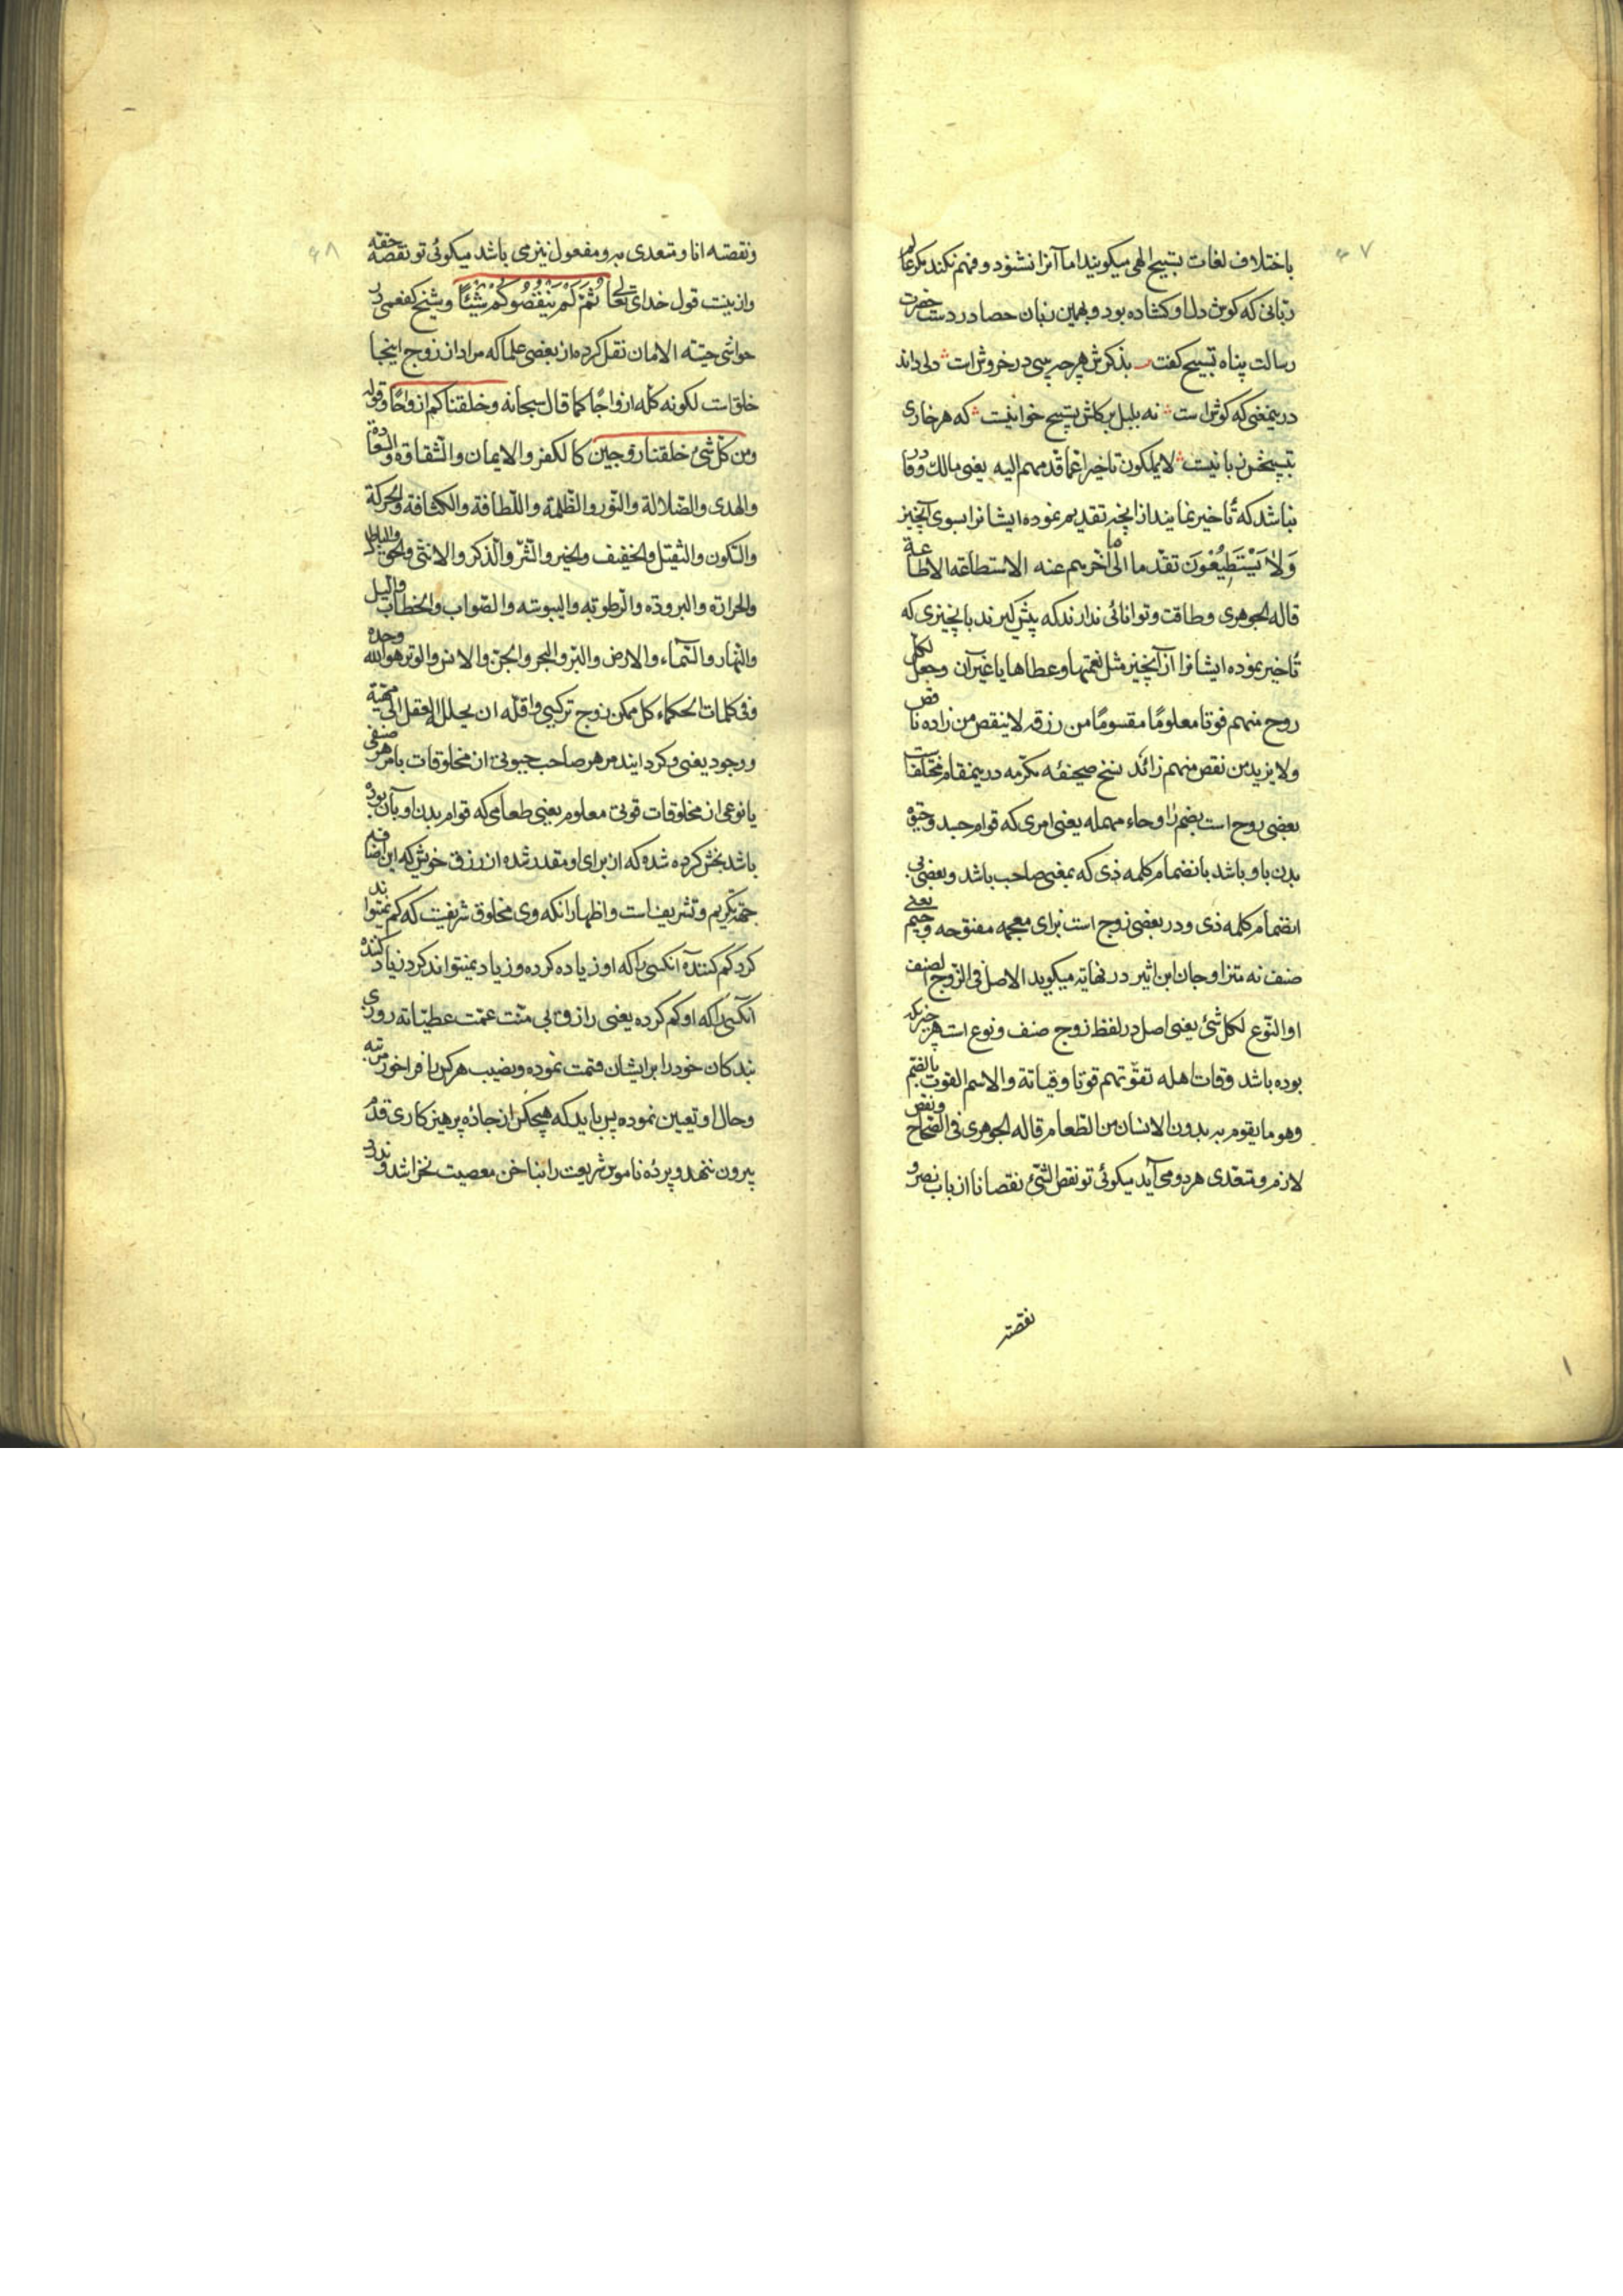 ۶۷
باختلاف لغات تسبیح الهی میکویند اما آنرا نشنود و فهم نکند مکر عالم
ربانی که کوش دل او کشاده بود و بهمین زبان حصا در دست حضرت
رسالت پناه تسبیح کفت بذکرش هر چه بینی در خروش است دلی داند
درینمعنی که کوش است نه بلبل بر کلش تسبیح خوانیست که هر خاری
تسبیحش زبانیست لا یملکون تاخیرا عما قدمهم الیه یعنی مالک و قادر
نباشد که تأخیر نمایند از انچه تقدیم نموده ایشانرا بسوی آنچیز
وَلا یَسْتَطِیْعُوْنَ تقدما الی ما اخرهم عنه الاستطاعه الاطاعة
قاله الجوهری و طاقت و توانائی ندارند که پیش کیرند بانچیزی که
تأخیر نموده ایشانرا از آنچیز مثل نعمتها و عطاها یا غیر آن وجعل لکل
روح منهم قوتا معلومًا مقسومًا من رزقه لا ینقص من زاده ناقص
ولا یزید من نقص منهم زائد نسخ صحیفئه مکرمه در ینمقام مختلفست
بعضی روح است بضم را و حاء مهمله یعنی امری که قوام جسد و حیوة
بدن باو باشد بانضمام کلمه ذی که بمعنی صاحب باشد و بعضی بی
انضمام کلمه ذی و در بعضی زوج است بزای معجمه مفتوحه و جیم یعنی
صنف نه متزاوجان ابن اثیر در نهایه میکوید الاصل فی الزوج الصنف
او النّوع لکل شئ یعنی اصل در لفظ زوج صنف و نوع است هر چیز که
بوده باشد وقات اهله تقوّتهم قوتا وقیاتة والاسم القوت بالضم
وهو ما یقوم به بدون الانسان من الطعام قاله الجوهری فی الصّحاح ونقص
لازم و متعدی هر دو می آید میکوئی تو نقص الشئ نقصانا از باب نصر و
نقصته
۶۸
ونقصته انا و متعدی بدو مفعول نیز می باشد میکوئی تو نقصه حقه
وازینست قول خدای تعالی ثُمَّ لَمْ یَنْقُصُوکُمْ شَیْئًا و شیخ کفعمی در
حواشی جنّة الامان نقل کرده از بعضی علما که مراد از زوج اینجا
خلق است لکونه کله ازواجًا کما قال سبحانه وخلقناکم ازواجًا وقوله
ومن کلّ شئ خلقنا زوجین کالکفر والایمان والشقاوة والسعادة
والهدی والضلالة والنّور والظّلمة واللّطافة والکثافة والحرکة
والسّکون والثقیل والخفیف والخیر والشّر والذکر والانثی والحق والباطل
والحرارة والبرودة والرطوبة والیبوسة والصّواب والخطاب واللیل
والنّهار والسّماء والارض والبرّ والبحر والجنّ والانس والوتر هو الله وحده
وفی کلمات الحکماء کل ممکن زوج ترکیبی واقلّه ان یحلله العقل الی مهیة
ووجود یعنی و کردانید مر هر صاحب حیوتی از مخلوقات یا مر هر صنفی
یا نوعی از مخلوقات قوتی معلوم یعنی طعامی که قوام بدن او بآن بوده
باشد بخش کرده شده که از برای او مقدر شده از رزق خویش که این اضافه
جهة تکریم و تشریف است و اظهار انکه وی مخلوق شریفست که کم نمیتواند
کرد کم کنندۀ آنکسی را که او زیاده کرده و زیاد نمیتواند کرد زیاد کننده
آنکسی را که او کم کرده یعنی رازق بی منّت عمّت عطیّاته روزی
بندکان خود را برایشان قسمت نموده و نصیب هر کس را فراخور مرتبه
وحال او تعیین نموده پس باید که هیچکس از جادۀ پرهیزکاری قدم
بیرون ننهد و پردۀ ناموس شریعت را بناخن معصیت نخراشد و ندرد